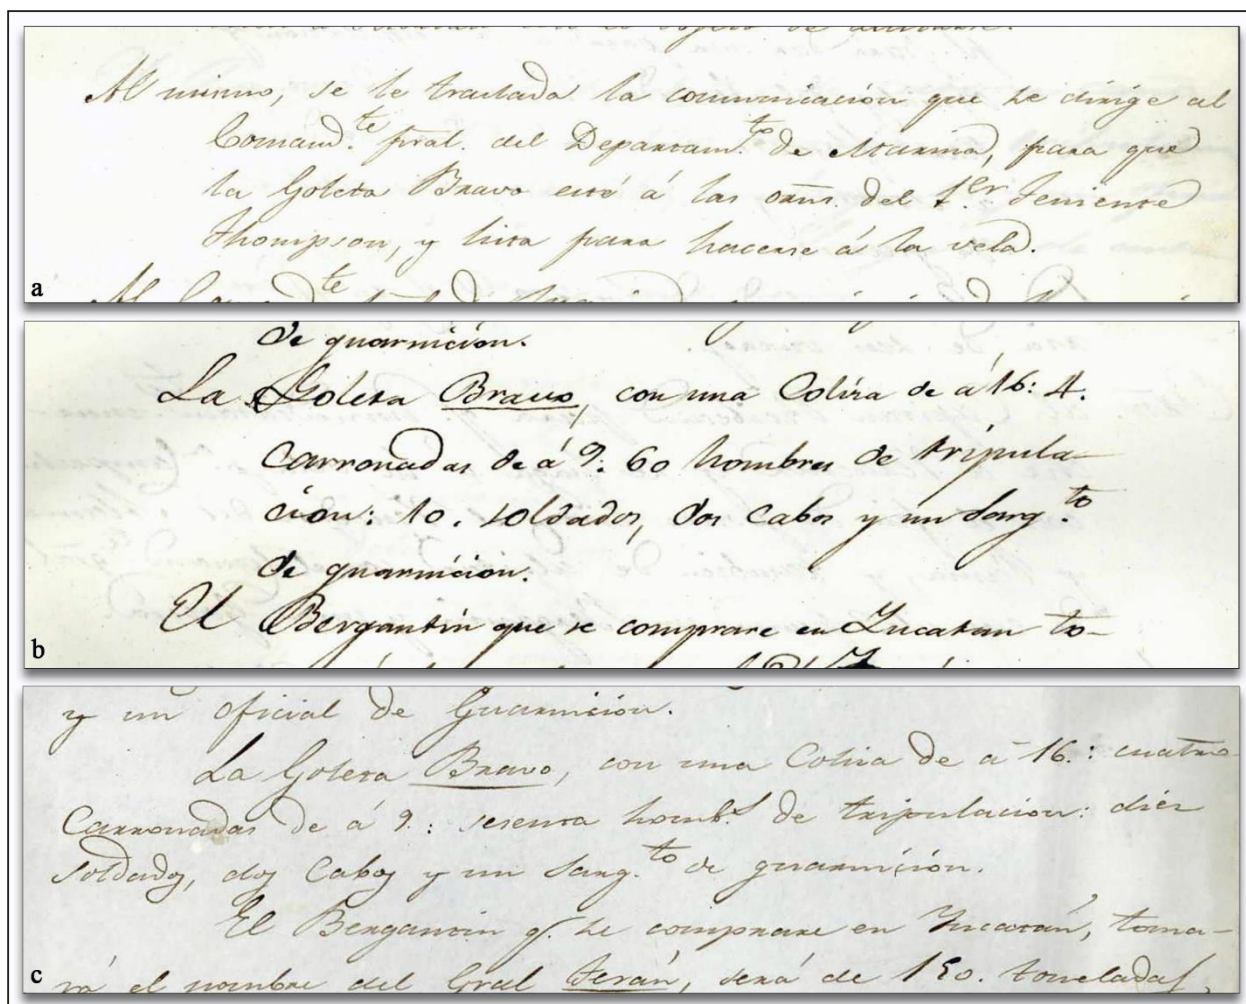 Al mismo, se le traslada la comunicación que se dirige al
Comand.te pral. del Departam.to de Marina, para que
la Goleta Bravo esté á las orns. del 1.er Teniente
Thompson, y lista para hacerse á la vela.
a
de guarnición.
La Goleta Bravo, con una Colisa de á 16: 4.
Carronadas de á 9: 60 hombres de tripula-
ción: 10. soldados, dos Cabos y un Sarg.to
de guarnición.
El Bergantín que se comprare en Yucatan to-
b
y un oficial de Guarnición.
La Goleta Bravo, con una Colisa de á 16.: cuatro
Carronadas de á 9.: sesenta homb.s de tripulacion: diez
soldados, dos Cabos y un Sarg.to de guarnición.
El Bergantin q. se comprare en Yucatán, toma-
rá el nombre del Gral Terán, será de 150. toneladas,
c